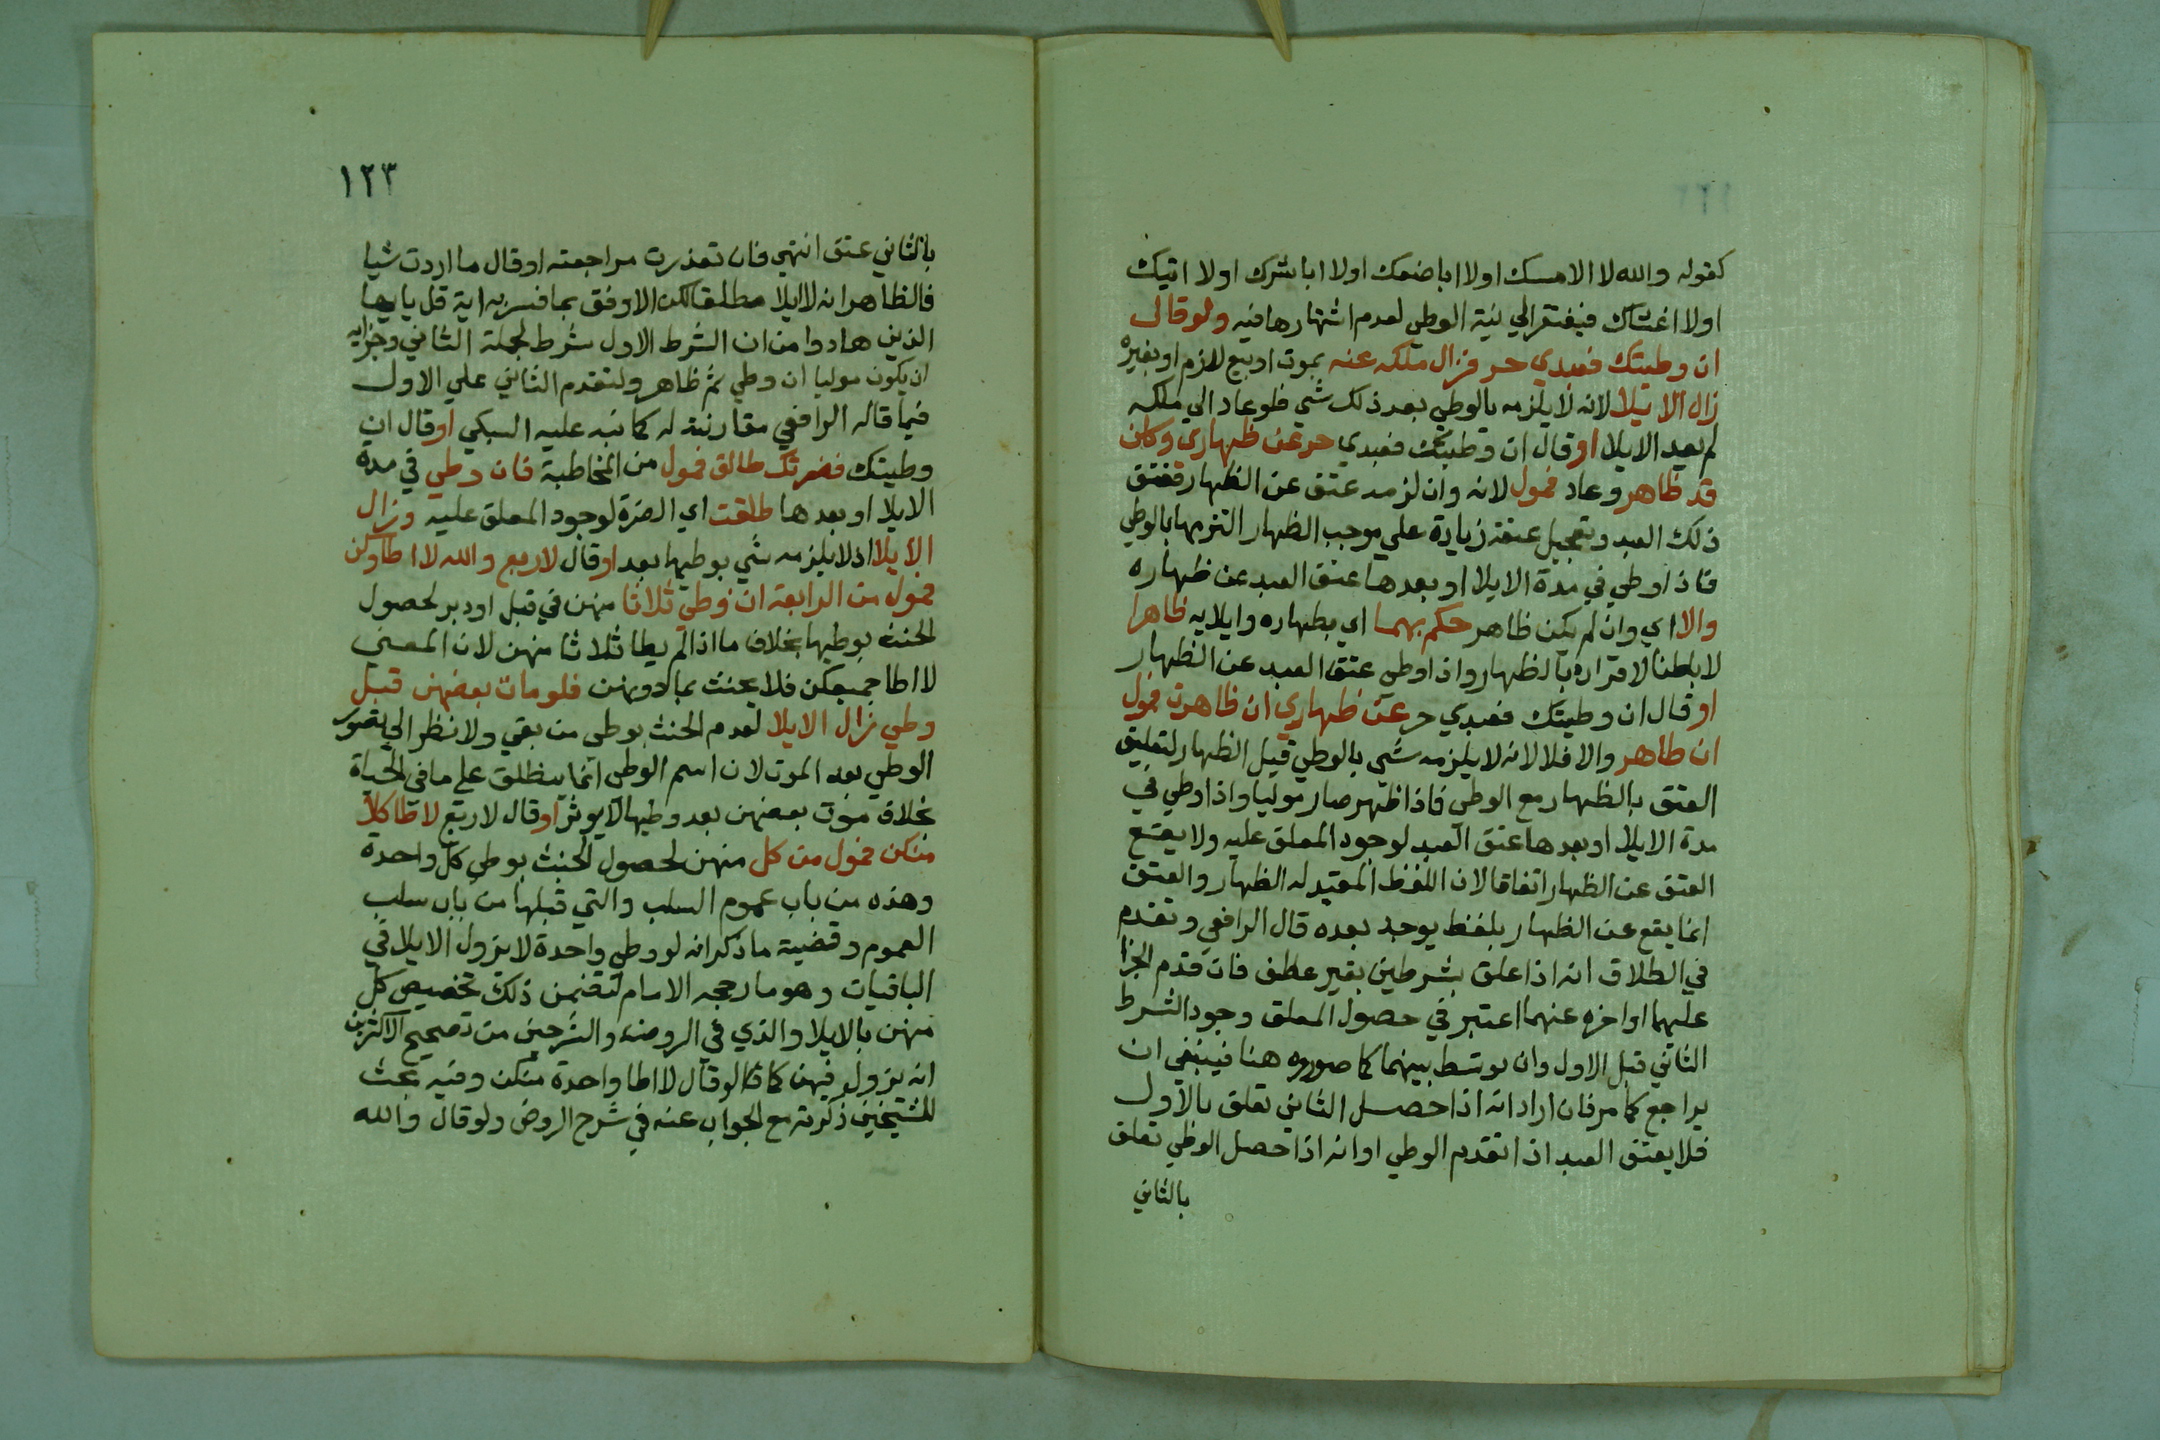 كقوله والله لا الامسك اولا اباضعك اولا اباشرك اولا اتيك
اولا اغشاك فيفتقر الي نية الوطي لعدم اشتهارها فيه ولو قال
ان وطيتك فعبدي حر فزال ملكه عنه بموت او بيع لازم او بغيره
زال الايلا لانه لا يلزمه بالوطي بعد ذلك شي فلو عاد الي ملكه
لم يعد الايلا او قال ان وطيتك فعبدي حر عن ظهاري وكان
قد ظاهر وعاد فمول لانه وان لزمه عتق عن الظهار فعتق
ذلك العبد وتعجيل عتقه زيادة علي موجب الظهار التزمها بالوطي
فاذا وطي في مدة الايلا او بعدها عتق العبد عن ظهاره
والا اي وان لم يكن ظاهر حكم بهما اي بظهاره وايلايه ظاهرا
لا باطنا لاقراره بالظهار واذا وطي عتق العبد عن الظهار
او قال ان وطيتك فعبدي حر عن ظهاري ان ظاهرت فمول
ان ظاهر والا فلا لانه لا يلزمه شي بالوطي قبل الظهار لتعليق
العتق بالظهار مع الوطي فاذا ظهر صار موليا واذا وطي في
مدة الايلا او بعدها عتق العبد لوجود المعلق عليه ولا يقع
العتق عن الظهار اتفاقا لان اللفظ المقيد له الظهار والعتق
انما يقع عن الظهار بلفظ يوجد بعده قال الرافعي وتقدم
في الطلاق انه اذا علق بشرطين بغير عطف فان قدم الجزا
عليهما او اخره عنهما اعتبر في حصول المعلق وجود الشرط
الثاني قبل الاول وان توسط بينهما كما صوروه هنا فينبغي ان
يراجع كما مر فان اراد انه اذا حصل الثاني تعلق بالاول
فلا يعتق العبد اذا تقدم الوطي او انه اذا حصل الوطي تعلق
بالثاني
١٢٣
بالثاني عتق انتهي فان تعذرت مراجعته او قال ما اردت شيا
فالظاهر انه لا ايلا مطلقا لكن الاوفق بما فسر به اية قل يايها
الذين هادوا من ان الشرط الاول شرط لجملة الثاني وجزايه
ان يكون موليا ان وطي ثم ظاهر ولتقدم الثاني علي الاول
فيما قاله الرافعي مقارنته له كما نبه عليه السبكي او قال ان
وطيتك فضرتك طالق فمول من المخاطبة فان وطي في مدة
الايلا او بعدها طلقت اي الضرة لوجود المعلق عليه وزال
الايلا اذ لا يلزمه شي بوطيها بعد او قال لاربع والله لا اطاوكن
فمول من الرابعة ان وطي ثلاثا منهن في قبل او دبر لحصول
الحنث بوطيها بخلاف ما اذا لم يطا ثلاثا منهن لان المعني
لا اطا جميعكن فلا يحنث بمادونهن فلو مات بعضهن قبل
وطي زال الايلا لعدم الحنث بوطي من بقي ولا نظر الي تصور
الوطي بعد الموت لان اسم الوطي انما ينطلق علي ما في الحياة
بخلاف موت بعضهن بعد وطيها لا يوثر او قال لاربع لا اطا كلا
منكن فمول من كل منهن لحصول الحنث بوطي كل واحدة
وهذه من باب عموم السلب والتي قبلها من باب سلب
العموم وقضية ما ذكر انه لو وطي واحدة لا يزول الايلا في
الباقيات وهو ما رجحه الامام لتضمن ذلك تخصيص كل
منهن بالايلا والذي في الروضة والشرحين من تصحيح الاكثرين
انه يزول فيهن كما لو قال لا اطا واحدة منكن وفيه بحث
للشيخين ذكرته مع الجواب عنه في شرح الروض ولو قال والله